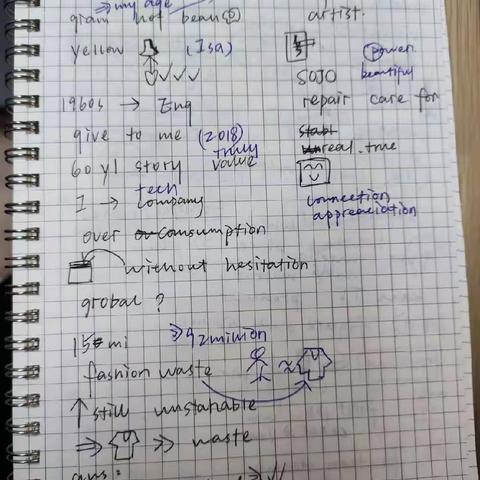 my age
gram not bean(s)
yellow (Isa)
1960s → Eng
give to me (2018)
truly
60 yl story value
tech
I → company
over consumption
without hesitation
grobal ?
15 mi ⇒92million
fashion waste
↑ still unstanable
⇒ ⇒ waste
artist.
power
SOJO beautiful
repair care for
stabl
real.true
connection
appreaciation